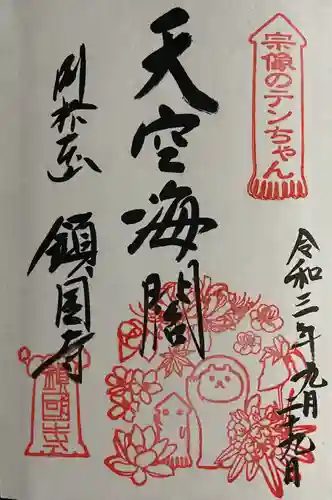 宗像のテンちゃん
令和三年九月二十九日
天空海闊
鎮国寺
鎮国寺